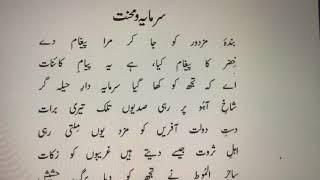 سرمایہ و محنت
بندۂ مزدور کو جا کر مرا پیغام دے
خضر کا پیغام کیا، ہے یہ پیامِ کائنات
اے کہ تجھ کو کھا گیا سرمایہ دارِ حیلہ گر
شاخِ آہُو پر رہی صدیوں تلک تیری برات
دستِ دولت آفریں کو مزد یوں مِلتی رہی
اہلِ ثروت جیسے دیتے ہیں غریبوں کو زکات
ساحرِ المُوط نے تجھ کو دیا برگِ حشیش